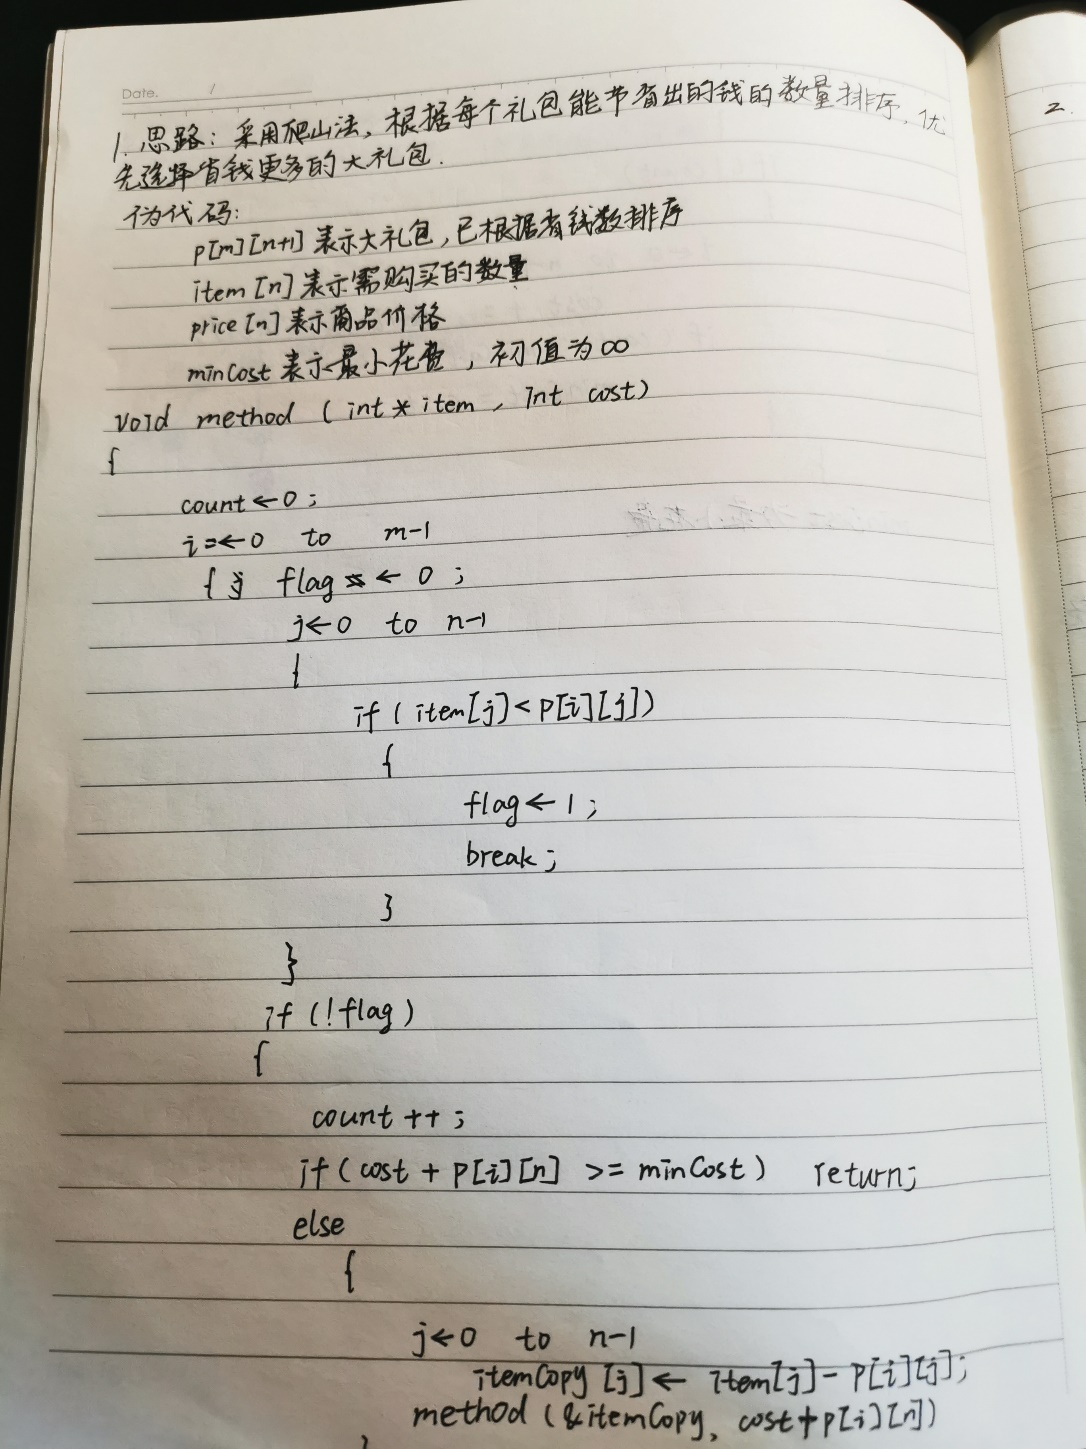 Date. /
1. 思路: 采用爬山法, 根据每个礼包能节省出的钱的数量排序, 优
先选择省钱更多的大礼包.
伪代码:
p[m][n+1] 表示大礼包, 已根据省钱数排序
item [n] 表示需购买的数量
price [n] 表示商品价格
minCost 表示最小花费, 初值为∞
void method ( int * item , int cost)
{
count ← 0 ;
i =← 0 to m-1
{ j flag ← 0 ;
j ← 0 to n-1
{
if ( item[j] < p[i][j])
{
flag ← 1 ;
break ;
}
}
if (!flag)
{
count ++ ;
if ( cost + p[i][n] >= minCost ) return ;
else
{
j ← 0 to n-1
itemCopy [j] ← item[j] - p[i][j];
method (&itemCopy, cost+p[i][n])
}
2.